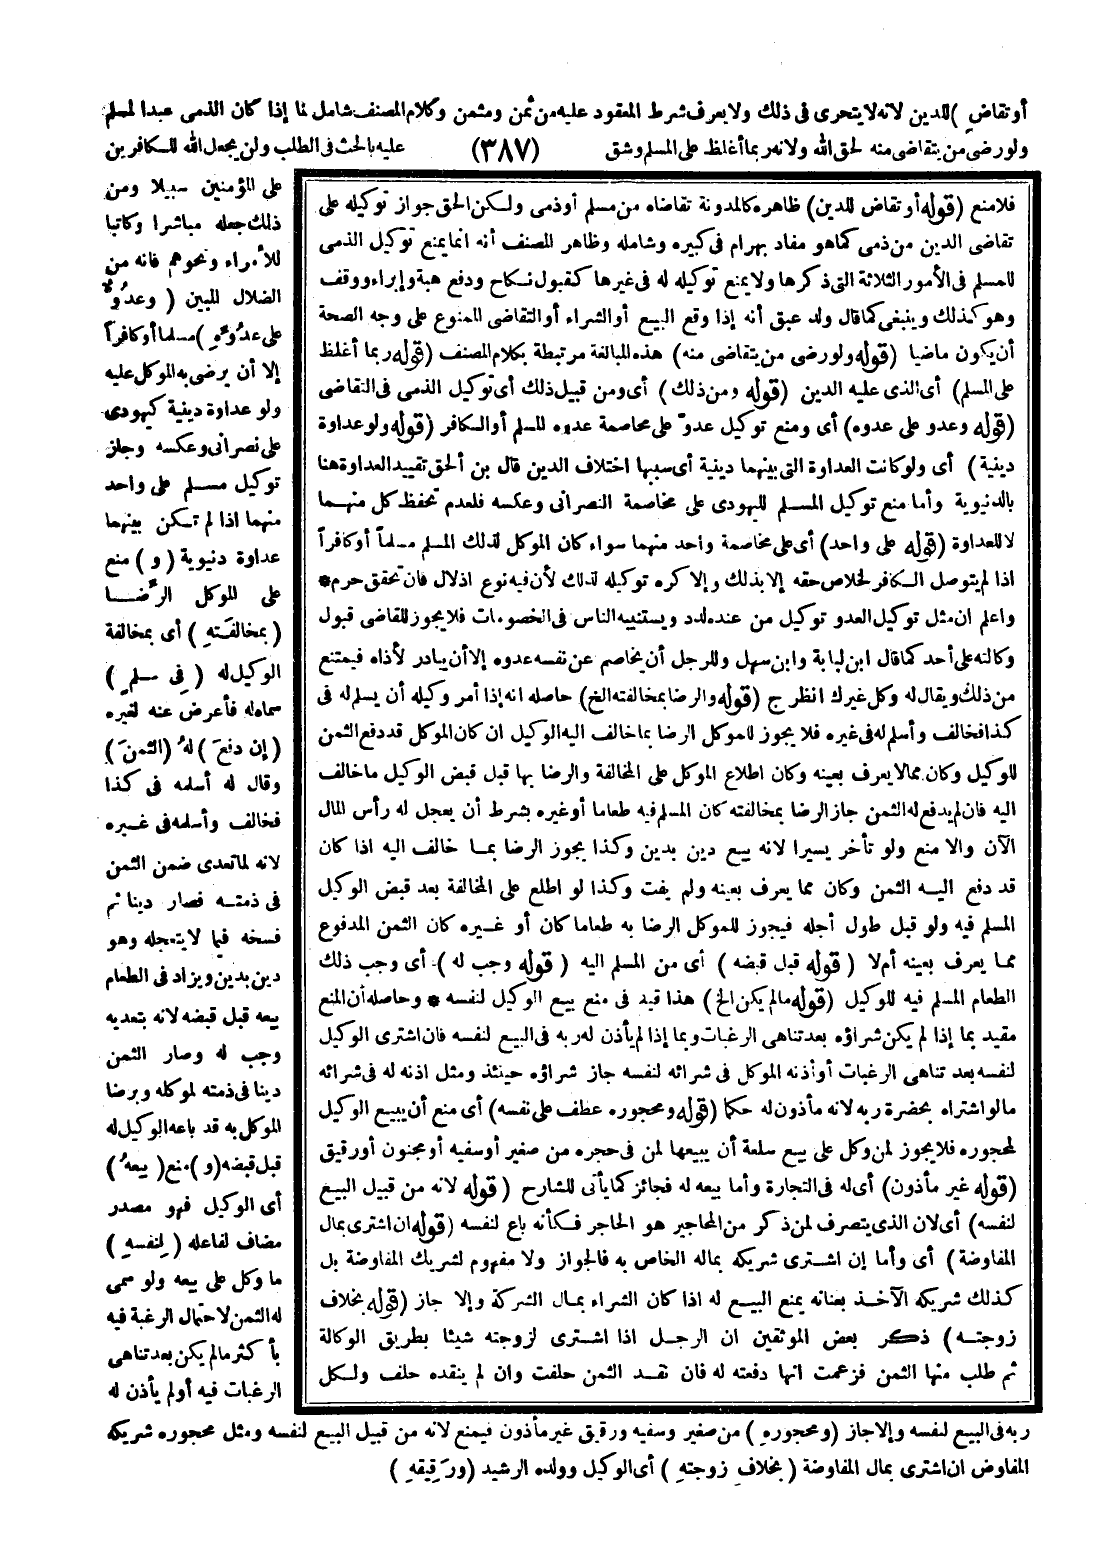 أو تقاض ) للدين لانه لا يتحرى فى ذلك ولا يعرف شرط المعقود عليه من ثمن ومثمن وكلام المصنف شامل لما إذا كان الذمى عبدا لمسلم
ولو رضى من يتقاضى منه لحق الله ولانه ربما أغلظ على المسلم وشق (٣٨٧) عليه بالحث فى الطلب ولن يجعل الله للكافرين
على المؤمنين سبيلا ومن
ذلك جعله مباشرا وكاتبا
للأمراء ونحوهم فانه من
الضلال المبين ( وعدُوٍّ
على عدُوِّهِ )مسلما أوكافراً
إلا أن يرضى به الموكل عليه
ولو عداوة دينية كيهودى
على نصرانى وعكسه وجاز
توكيل مسلم على واحد
منهما اذا لم تكن بينهما
عداوة دنيوية ( و ) منع
على الموكل الرِّضا
( بمخالفَتهِ ) أى بمخالفة
الوكيل له ( فِى سلمٍ )
سماه له فأعرض عنه لغيره
( إن دفعَ ) لهُ (الثمنَ )
وقال له أسلمه فى كذا
فخالف وأسلمه فى غيره
لانه لما تعدى ضمن الثمن
فى ذمته فصار دينا ثم
فسخه فيما لا يتعجله وهو
دين بدين ويزاد فى الطعام
بيعه قبل قبضه لانه بتعديه
وجب له وصار الثمن
دينا فى ذمته لموكله وبرضا
الموكل به قد باعه الوكيل له
قبل قبضه (و) منع( بيعهُ )
أى الوكيل فهو مصدر
مضاف لفاعله ( لِنفسهِ )
ما وكل على بيعه ولو سمى
له الثمن لاحتمال الرغبة فيه
بأكثر مالم يكن بعد تناهى
الرغبات فيه أولم يأذن له
فلا منع (قوله أو تقاض للدين) ظاهره كالمدونة تقاضاه من مسلم أوذمى ولكن الحق جواز توكيله على
تقاضى الدين من ذمى كما هو مفاد بهرام فى كبيره وشامله وظاهر المصنف أنه انما يمنع توكيل الذمى
للمسلم فى الأمور الثلاثة التى ذكرها ولا يمنع توكيله له فى غيرها كقبول نكاح ودفع هبة وإبراء ووقف
وهو كذلك وينبغى كما قال ولد عبق أنه إذا وقع البيع أو الشراء أو التقاضى الممنوع على وجه الصحة
أن يكون ماضيا (قوله ولو رضى من يتقاضى منه) هذه المبالغة مرتبطة بكلام المصنف (قوله ربما أغلظ
على المسلم) أى الذى عليه الدين (قوله ومن ذلك) أى ومن قبيل ذلك أى توكيل الذمى فى التقاضى
(قوله وعدو على عدوه) أى ومنع توكيل عدوّ على مخاصمة عدوه المسلم أو الكافر (قوله ولو عداوة
دينية) أى ولو كانت العداوة التى بينهما دينية أى سببها اختلاف الدين قال بن ألحق تقييد العداوة هنا
بالدنيوية وأما منع توكيل المسلم لليهودى على مخاصمة النصرانى وعكسه فلعدم تحفظ كل منهما
لا للعداوة (قوله على واحد) أى على مخاصمة واحد منهما سواء كان الموكل لذلك المسلم مسلماً أوكافراً
اذا لم يتوصل الكافر لخلاص حقه إلا بذلك وإلا كره توكيله لذلك لأن فيه نوع اذلال فان تحقق حرم *
واعلم ان مثل توكيل العدو توكيل من عنده لدد ويستنيبه الناس فى الخصومات فلا يجوز للقاضى قبول
وكالته على أحد كما قال ابن لبابة وابن سهل وللرجل أن يخاصم عن نفسه عدوه إلا أن يبادر لأذاه فيمتنع
من ذلك ويقال له وكل غيرك انظر ح (قوله والرضا بمخالفته الخ) حاصله انه إذا أمر وكيله أن يسلم له فى
كذا فخالف وأسلم له فى غيره فلا يجوز للموكل الرضا بما خالف اليه الوكيل ان كان الموكل قد دفع الثمن
للوكيل وكان مما لا يعرف بعينه وكان اطلاع الموكل على المخالفة والرضا بها قبل قبض الوكيل ما خالف
اليه فان لم يدفع له الثمن جاز الرضا بمخالفته كان المسلم فيه طعاما أو غيره بشرط أن يعجل له رأس المال
الآن والا منع ولو تأخر يسيرا لانه بيع دين بدين وكذا يجوز الرضا بما خالف اليه اذا كان
قد دفع اليه الثمن وكان مما يعرف بعينه ولم يفت وكذا لو اطلع على المخالفة بعد قبض الوكيل
المسلم فيه ولو قبل طول أجله فيجوز للموكل الرضا به طعاما كان أو غيره كان الثمن المدفوع
مما يعرف بعينه أم لا ( قوله قبل قبضه ) أى من المسلم اليه ( قوله وجب له ) أى وجب ذلك
الطعام المسلم فيه للوكيل (قوله مالم يكن الخ) هذا قيد فى منع بيع الوكيل لنفسه * وحاصله أن المنع
مقيد بما إذا لم يكن شراؤه بعد تناهى الرغبات وبما إذا لم يأذن له ربه فى البيع لنفسه فان اشترى الوكيل
لنفسه بعد تناهى الرغبات أو أذنه الموكل فى شرائه لنفسه جاز شراؤه حينئذ ومثل اذنه له فى شرائه
مالو اشتراه بحضرة ربه لانه مأذون له حكما (قوله ومحجوره عطف على نفسه) أى منع أن يبيع الوكيل
لمحجوره فلا يجوز لمن وكل على بيع سلعة أن يبيعها لمن فى حجره من صغير أوسفيه أومجنون أورقيق
(قوله غير مأذون) أى له فى التجارة وأما بيعه له فجائز كما يأتى للشارح ( قوله لانه من قبيل البيع
لنفسه) أى لان الذى يتصرف لمن ذكر من المحاجير هو الحاجر فكأنه باع لنفسه (قوله ان اشترى بمال
المفاوضة ) أى وأما إن اشترى شريكه بماله الخاص به فالجواز ولا مفهوم لشريك المفاوضة بل
كذلك شريكه الآخذ بعنانه يمنع البيع له اذا كان الشراء بمال الشركة وإلا جاز (قوله بخلاف
زوجته ) ذكر بعض الموثقين ان الرجل اذا اشترى لزوجته شيئا بطريق الوكالة
ثم طلب منها الثمن فزعمت انها دفعته له فان نقد الثمن حلفت وان لم ينقده حلف ولكل
ربه فى البيع لنفسه وإلا جاز (ومحجورهِ ) من صغير وسفيه ورقيق غير مأذون فيمنع لانه من قبيل البيع لنفسه ومثل محجوره شريكه
المفاوض ان اشترى بمال المفاوضة ( بخلافِ زوجتهِ ) أى الوكيل وولده الرشيد (ورَقيقهِ )